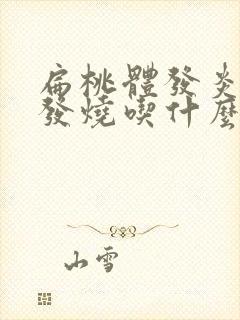 扁桃體發炎
發燒喫什麼
山雪